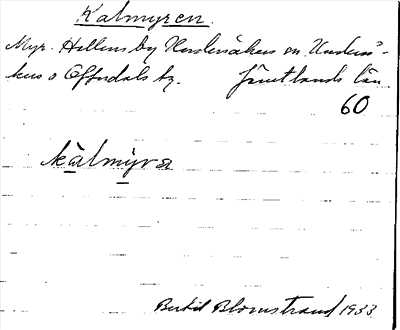 Kalmyren.
Myr. Hallens by Undersåkers sn. Unders-
åkers o Offerdals tg. Jämtlands län
60
kàlmỳra
Bertil Blomstrand 1933